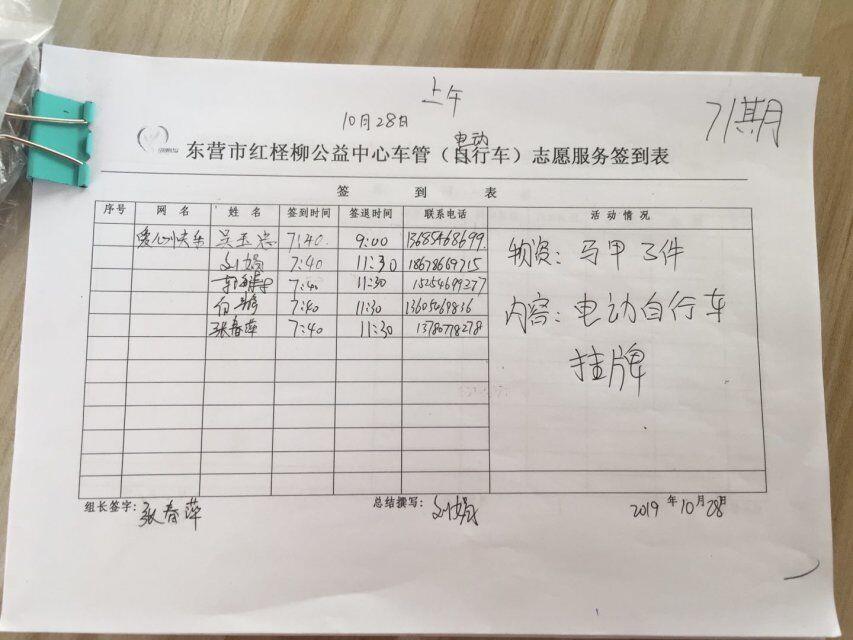 上午
10月28日
71期
电动
东营市红柽柳公益中心车管（自行车）志愿服务签到表
签 到 表
序号 网 名 姓 名 签到时间 签退时间 联系电话 活 动 情 况
吴玉忠 7:40 9:00 13685468699
刘娟 7:40 11:30 18678669715
7:40 11:30 15254699377
7:40 11:30 13605469816
张春萍 7:40 11:30 13780778278
物资：马甲3件
内容：电动自行车
挂牌
组长签字：张春萍 总结撰写：刘娟 2019年10月28日